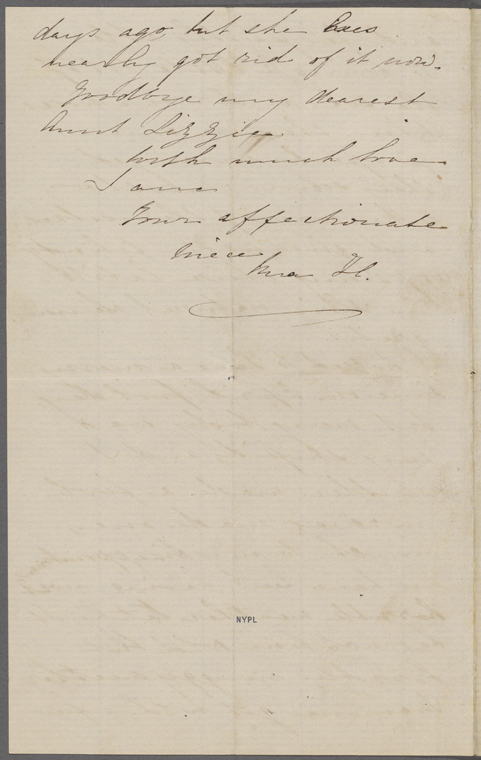 days ago but she has
nearly got rid of it now.
Goodbye my dearest
Aunt Lizzie
With much love
I am
Your affectionate
niece
H.
NYPL